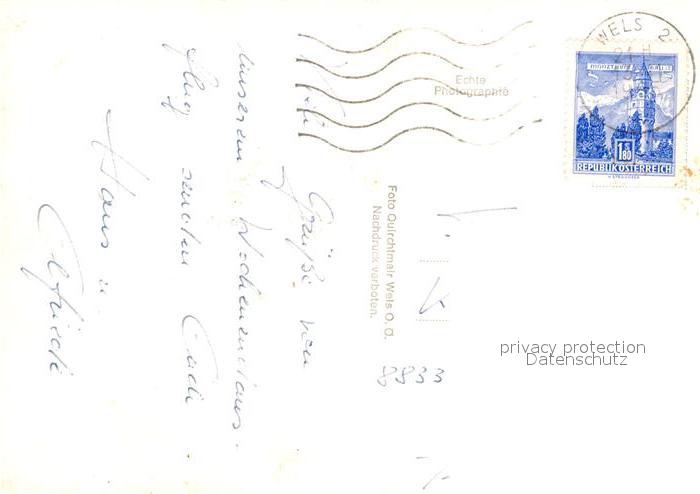 WELS 2
21 H
Echte
Photographie
MÜNZTURM
1.80
S
REPUBLIK OSTERREICH
Foto Quirchtmair Wels O. Ö.
Nachdruck verboten.
Viele
Grüße von
unserem Wochenendaus-
flug senden Euch
Hans u.
Elfriede
8833
privacy protection
Datenschutz